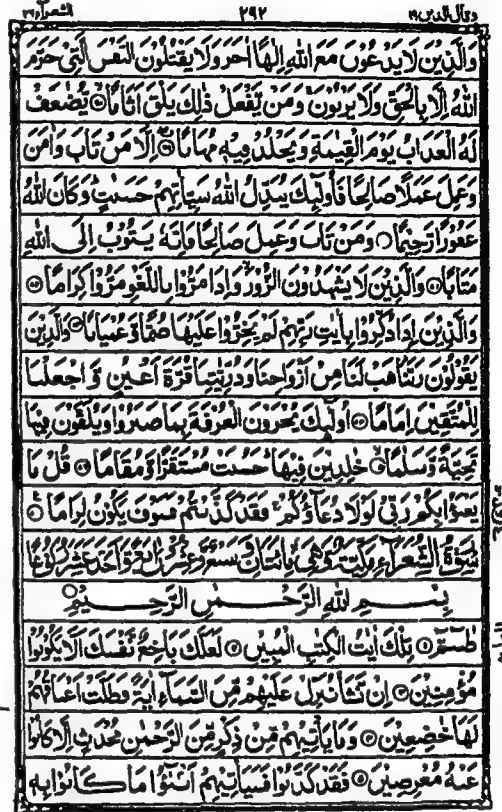 وقال الذین ۱۹ ۲۹۲ الشعرآء ۲۶
وَالَّذِیْنَ لَا یَدْعُوْنَ مَعَ اللهِ اِلٰهًا اٰخَرَ وَلَا یَقْتُلُوْنَ النَّفْسَ الَّتِیْ حَرَّمَ
اللهُ اِلَّا بِالْحَقِّ وَلَا یَزْنُوْنَ وَمَنْ یَّفْعَلْ ذٰلِكَ یَلْقَ اَثَامًا یُّضٰعَفْ
لَهُ الْعَذَابُ یَوْمَ الْقِیٰمَةِ وَیَخْلُدْ فِیْهٖ مُهَانًا اِلَّا مَنْ تَابَ وَاٰمَنَ
وَعَمِلَ عَمَلًا صَالِحًا فَاُولٰٓئِكَ یُبَدِّلُ اللهُ سَیِّاٰتِهِمْ حَسَنٰتٍ وَكَانَ اللهُ
غَفُوْرًا رَّحِیْمًا وَمَنْ تَابَ وَعَمِلَ صَالِحًا فَاِنَّهٗ یَتُوْبُ اِلَى اللهِ
مَتَابًا وَالَّذِیْنَ لَا یَشْهَدُوْنَ الزُّوْرَ وَاِذَا مَرُّوْا بِاللَّغْوِ مَرُّوْا كِرَامًا
وَالَّذِیْنَ اِذَا ذُكِّرُوْا بِاٰیٰتِ رَبِّهِمْ لَمْ یَخِرُّوْا عَلَیْهَا صُمًّا وَّعُمْیَانًا وَالَّذِیْنَ
یَقُوْلُوْنَ رَبَّنَا هَبْ لَنَا مِنْ اَزْوَاجِنَا وَذُرِّیّٰتِنَا قُرَّةَ اَعْیُنٍ وَّاجْعَلْنَا
لِلْمُتَّقِیْنَ اِمَامًا اُولٰٓئِكَ یُجْزَوْنَ الْغُرْفَةَ بِمَا صَبَرُوْا وَیُلَقَّوْنَ فِیْهَا
تَحِیَّةً وَّسَلٰمًا خٰلِدِیْنَ فِیْهَا حَسُنَتْ مُسْتَقَرًّا وَّمُقَامًا قُلْ مَا
یَعْبَؤُا بِكُمْ رَبِّیْ لَوْلَا دُعَآؤُكُمْ فَقَدْ كَذَّبْتُمْ فَسَوْفَ یَكُوْنُ لِزَامًا
سُوْرَةُ الشُّعَرَآءِ مَكِّیَّةٌ وَّهِیَ مِائَتَانِ وَسَبْعٌ وَّعِشْرُوْنَ اٰیَةً وَّاَحَدَ عَشَرَ رُكُوْعًا
بِسْمِ اللهِ الرَّحْمٰنِ الرَّحِیْمِ
طٰسٓمّٓ تِلْكَ اٰیٰتُ الْكِتٰبِ الْمُبِیْنِ لَعَلَّكَ بَاخِعٌ نَّفْسَكَ اَلَّا یَكُوْنُوْا
مُؤْمِنِیْنَ اِنْ نَّشَاْ نُنَزِّلْ عَلَیْهِمْ مِّنَ السَّمَآءِ اٰیَةً فَظَلَّتْ اَعْنَاقُهُمْ
لَهَا خٰضِعِیْنَ وَمَا یَاْتِیْهِمْ مِّنْ ذِكْرٍ مِّنَ الرَّحْمٰنِ مُحْدَثٍ اِلَّا كَانُوْا
عَنْهُ مُعْرِضِیْنَ فَقَدْ كَذَّبُوْا فَسَیَاْتِیْهِمْ اَنْۢبٰٓؤُا مَا كَانُوْا بِهٖ